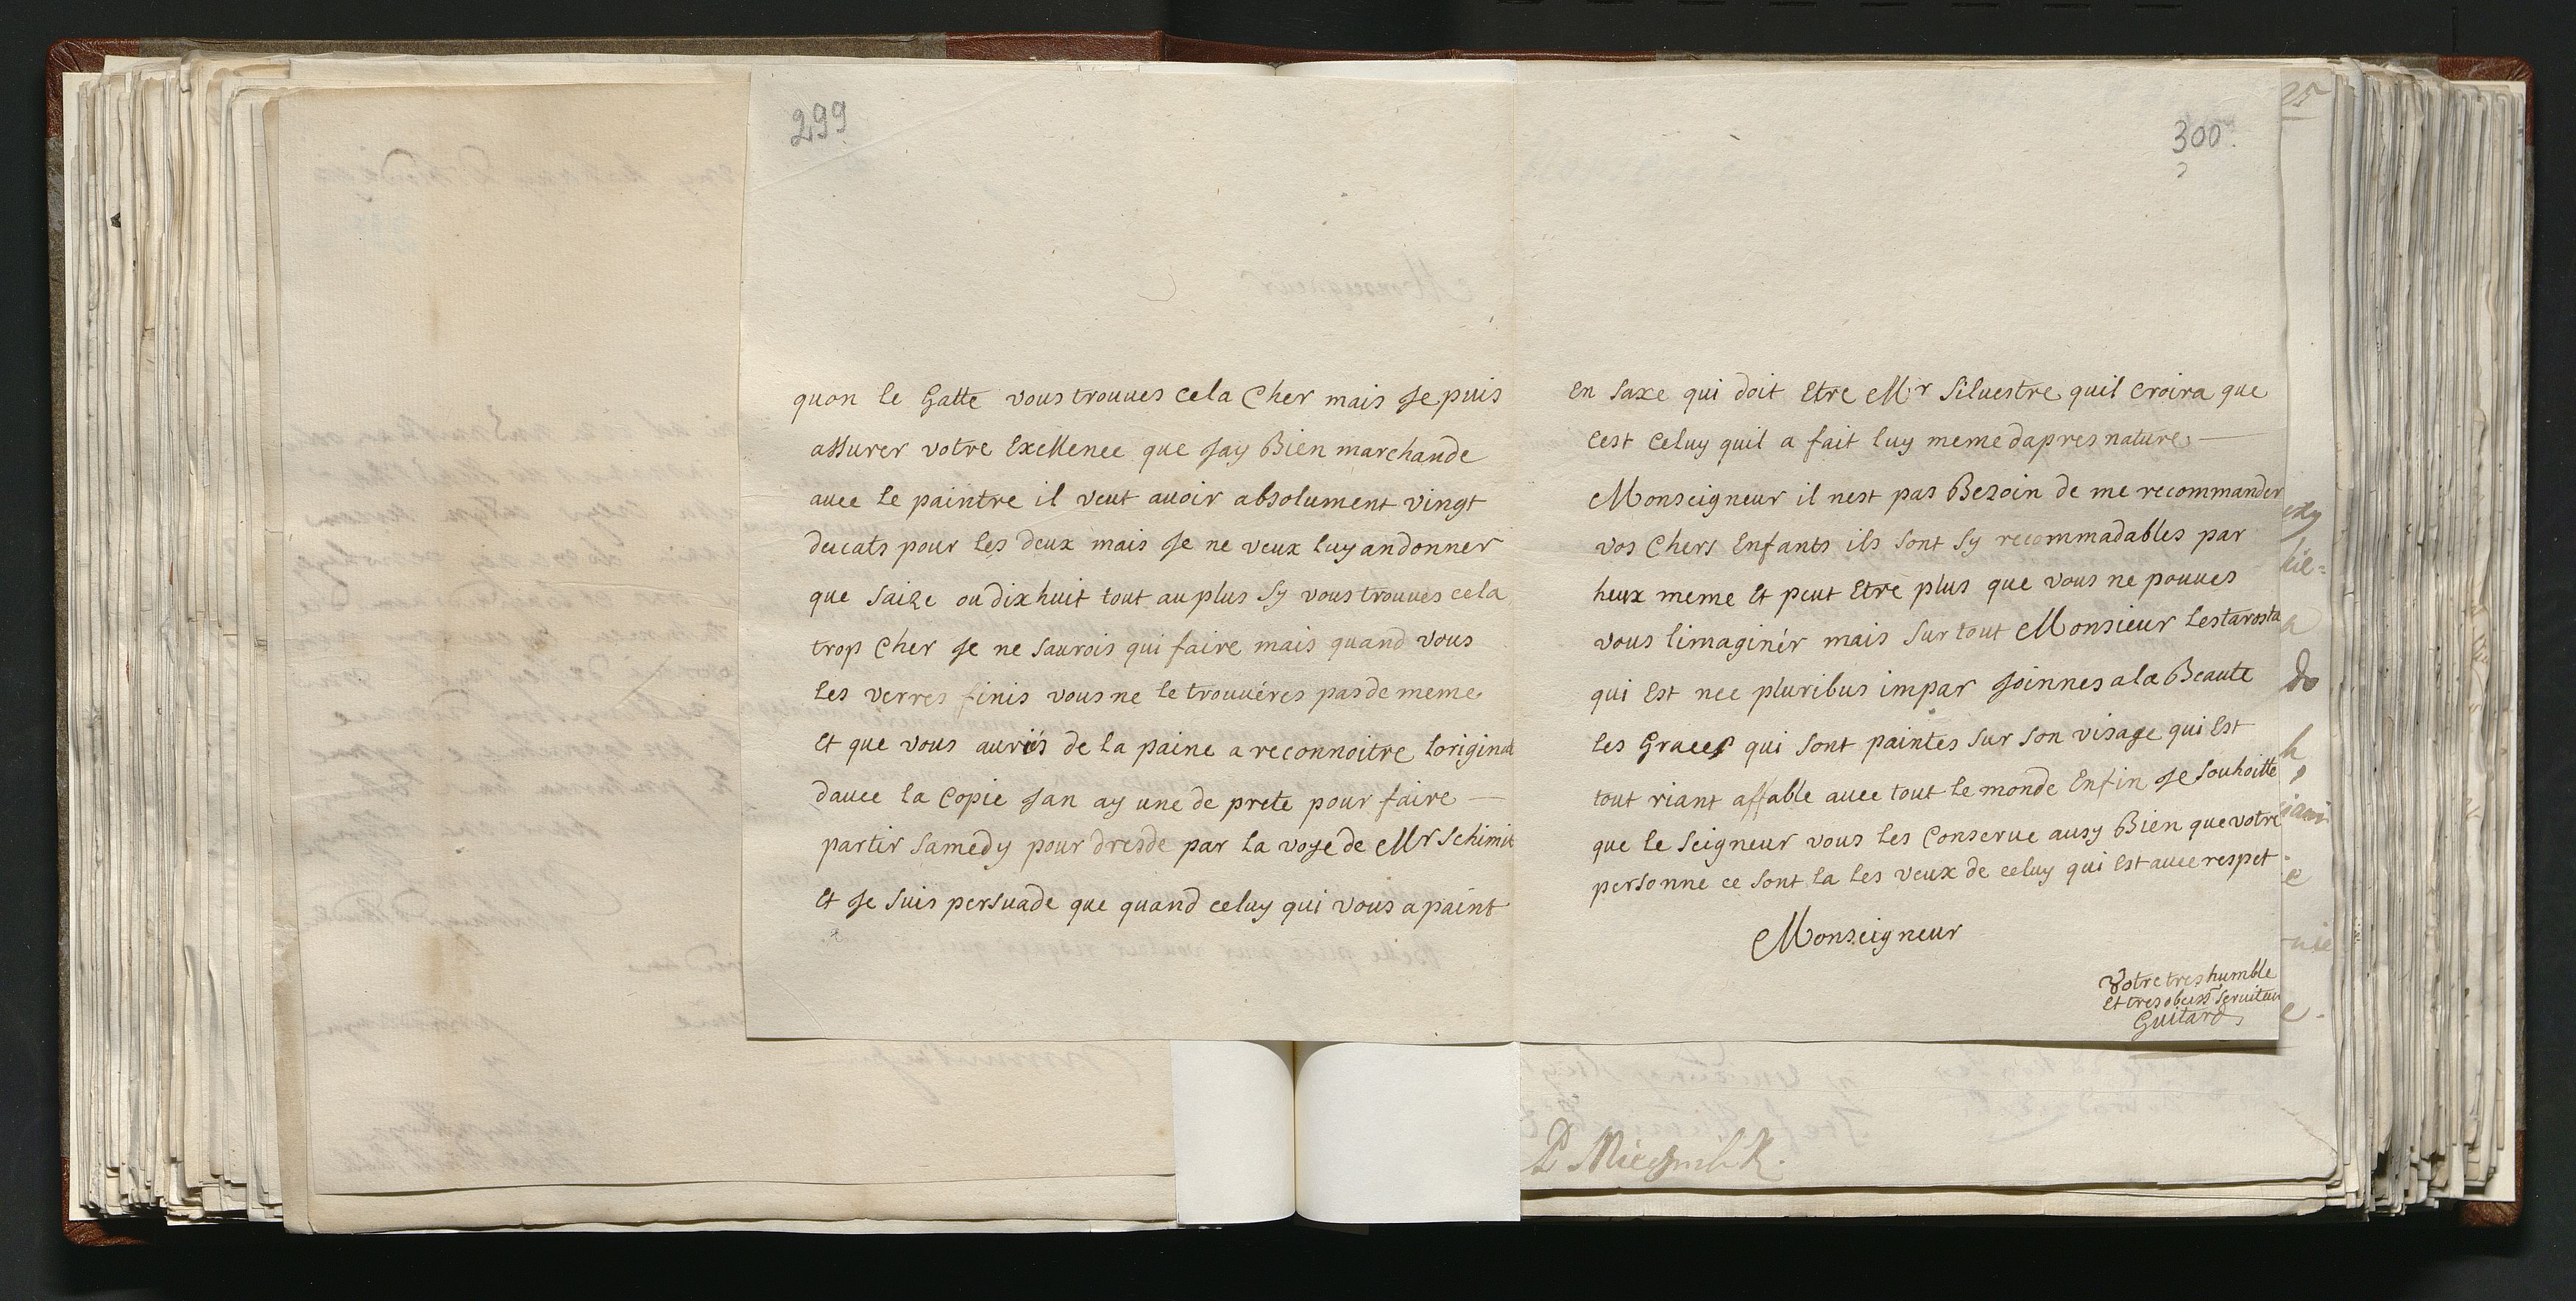 299
quon le Gatte vous trouues cela Cher mais Je puis
assurer votre Exellence que Jay Bien marchande
auec le paintre il veut auoir absolument vingt
ducats pour les deux mais Je ne veux luy andonner
que saize ou dix huit tout au plus sy vous trouues cela
trop Cher Je ne saurois qui faire mais quand vous
les verres finis vous ne le trouuéres pas de meme
Et que vous auriés de la paine a reconnoitre loriginal
dauec la Copie Jan ay une de prete pour faire —
partir samedy pour dresde par la voye de Mr Schimit
Et Je suis persuade que quand celuy qui vous a paint
300.
2
en saxe qui doit Etre Mr Siluestre quil croira que
cest Celuy quil a fait luy meme dapres nature —
Monseigneur il nest pas Bezoin de me recommander
vos Chers Enfants ils sont sy recommadables par
heux meme Et peut Etre plus que vous ne pouues
vous limaginér mais sur tout Monsieur Lestarosta
qui Est nec pluribus impar Joinnes a la Beaute
les Graces qui sont paintes sur son visage qui Est
tout riant affable auec tout le monde Enfin Je souhoitte
que le seigneur vous les Conserue ausy Bien que votre
personne ce sont la les veux de celuy qui Est auec respet
Monseigneur
Votre tres humble
Et tres obeiss seruiteur
Guitard
25
do